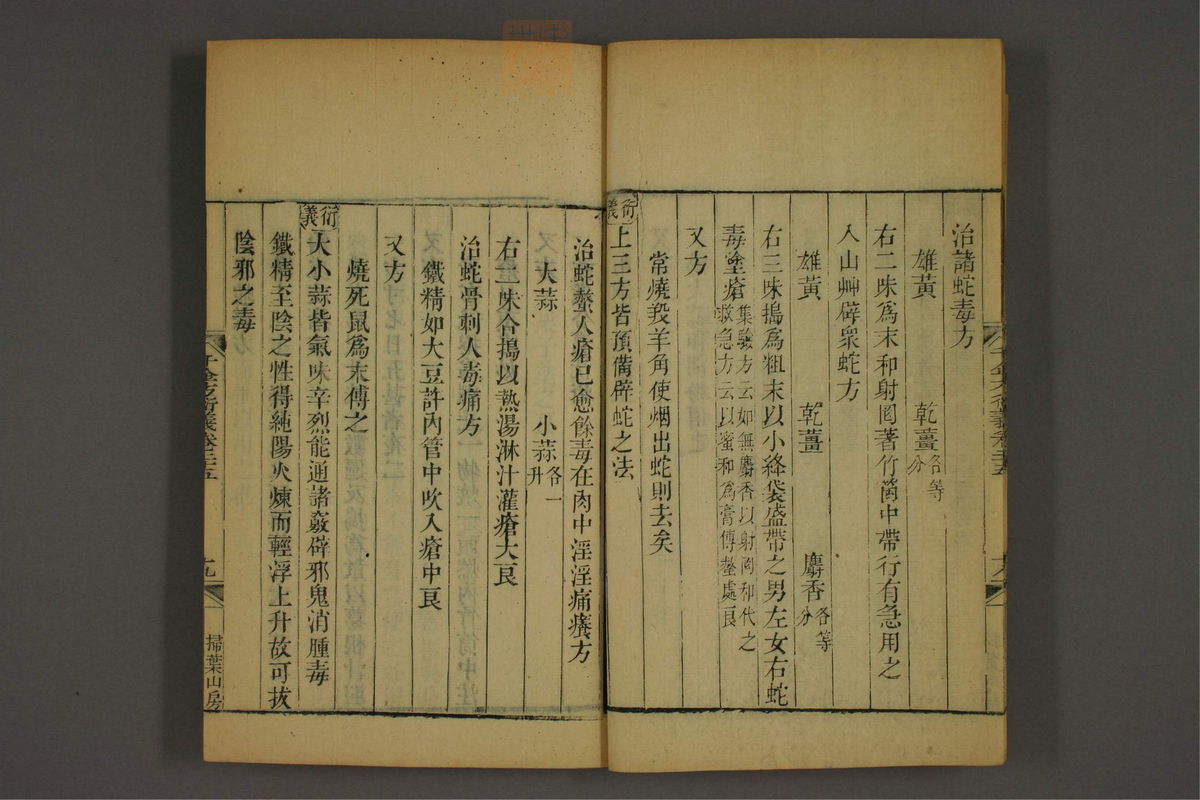 治諸蛇毒方
雄黃 乾薑各等分
右二味爲末和射罔著竹筩中帶行有急用之
入山艸辟衆蛇方
雄黃 乾薑 麝香各等分
右三味搗爲粗末以小絳袋盛帶之男左女右蛇
毒塗瘡集驗方云如無麝香以射罔和代之救急方云以蜜和爲膏傅螫處良
又方
常燒羖羊角使烟出蛇則去矣
衍義上三方皆預備辟蛇之法
治蛇螫人瘡已愈餘毒在肉中淫淫痛癢方
大蒜 小蒜各一升
右二味合搗以熱湯淋汁灌瘡大良
治蛇骨刺人毒痛方
鐵精如大豆許內管中吹入瘡中良
又方
燒死鼠爲末傅之
衍義大小蒜皆氣味辛烈能通諸竅辟邪鬼消腫毒
鐵精至陰之性得純陽火煉而輕浮上升故可拔
陰邪之毒
千金方衍義卷二十五 十九 掃葉山房